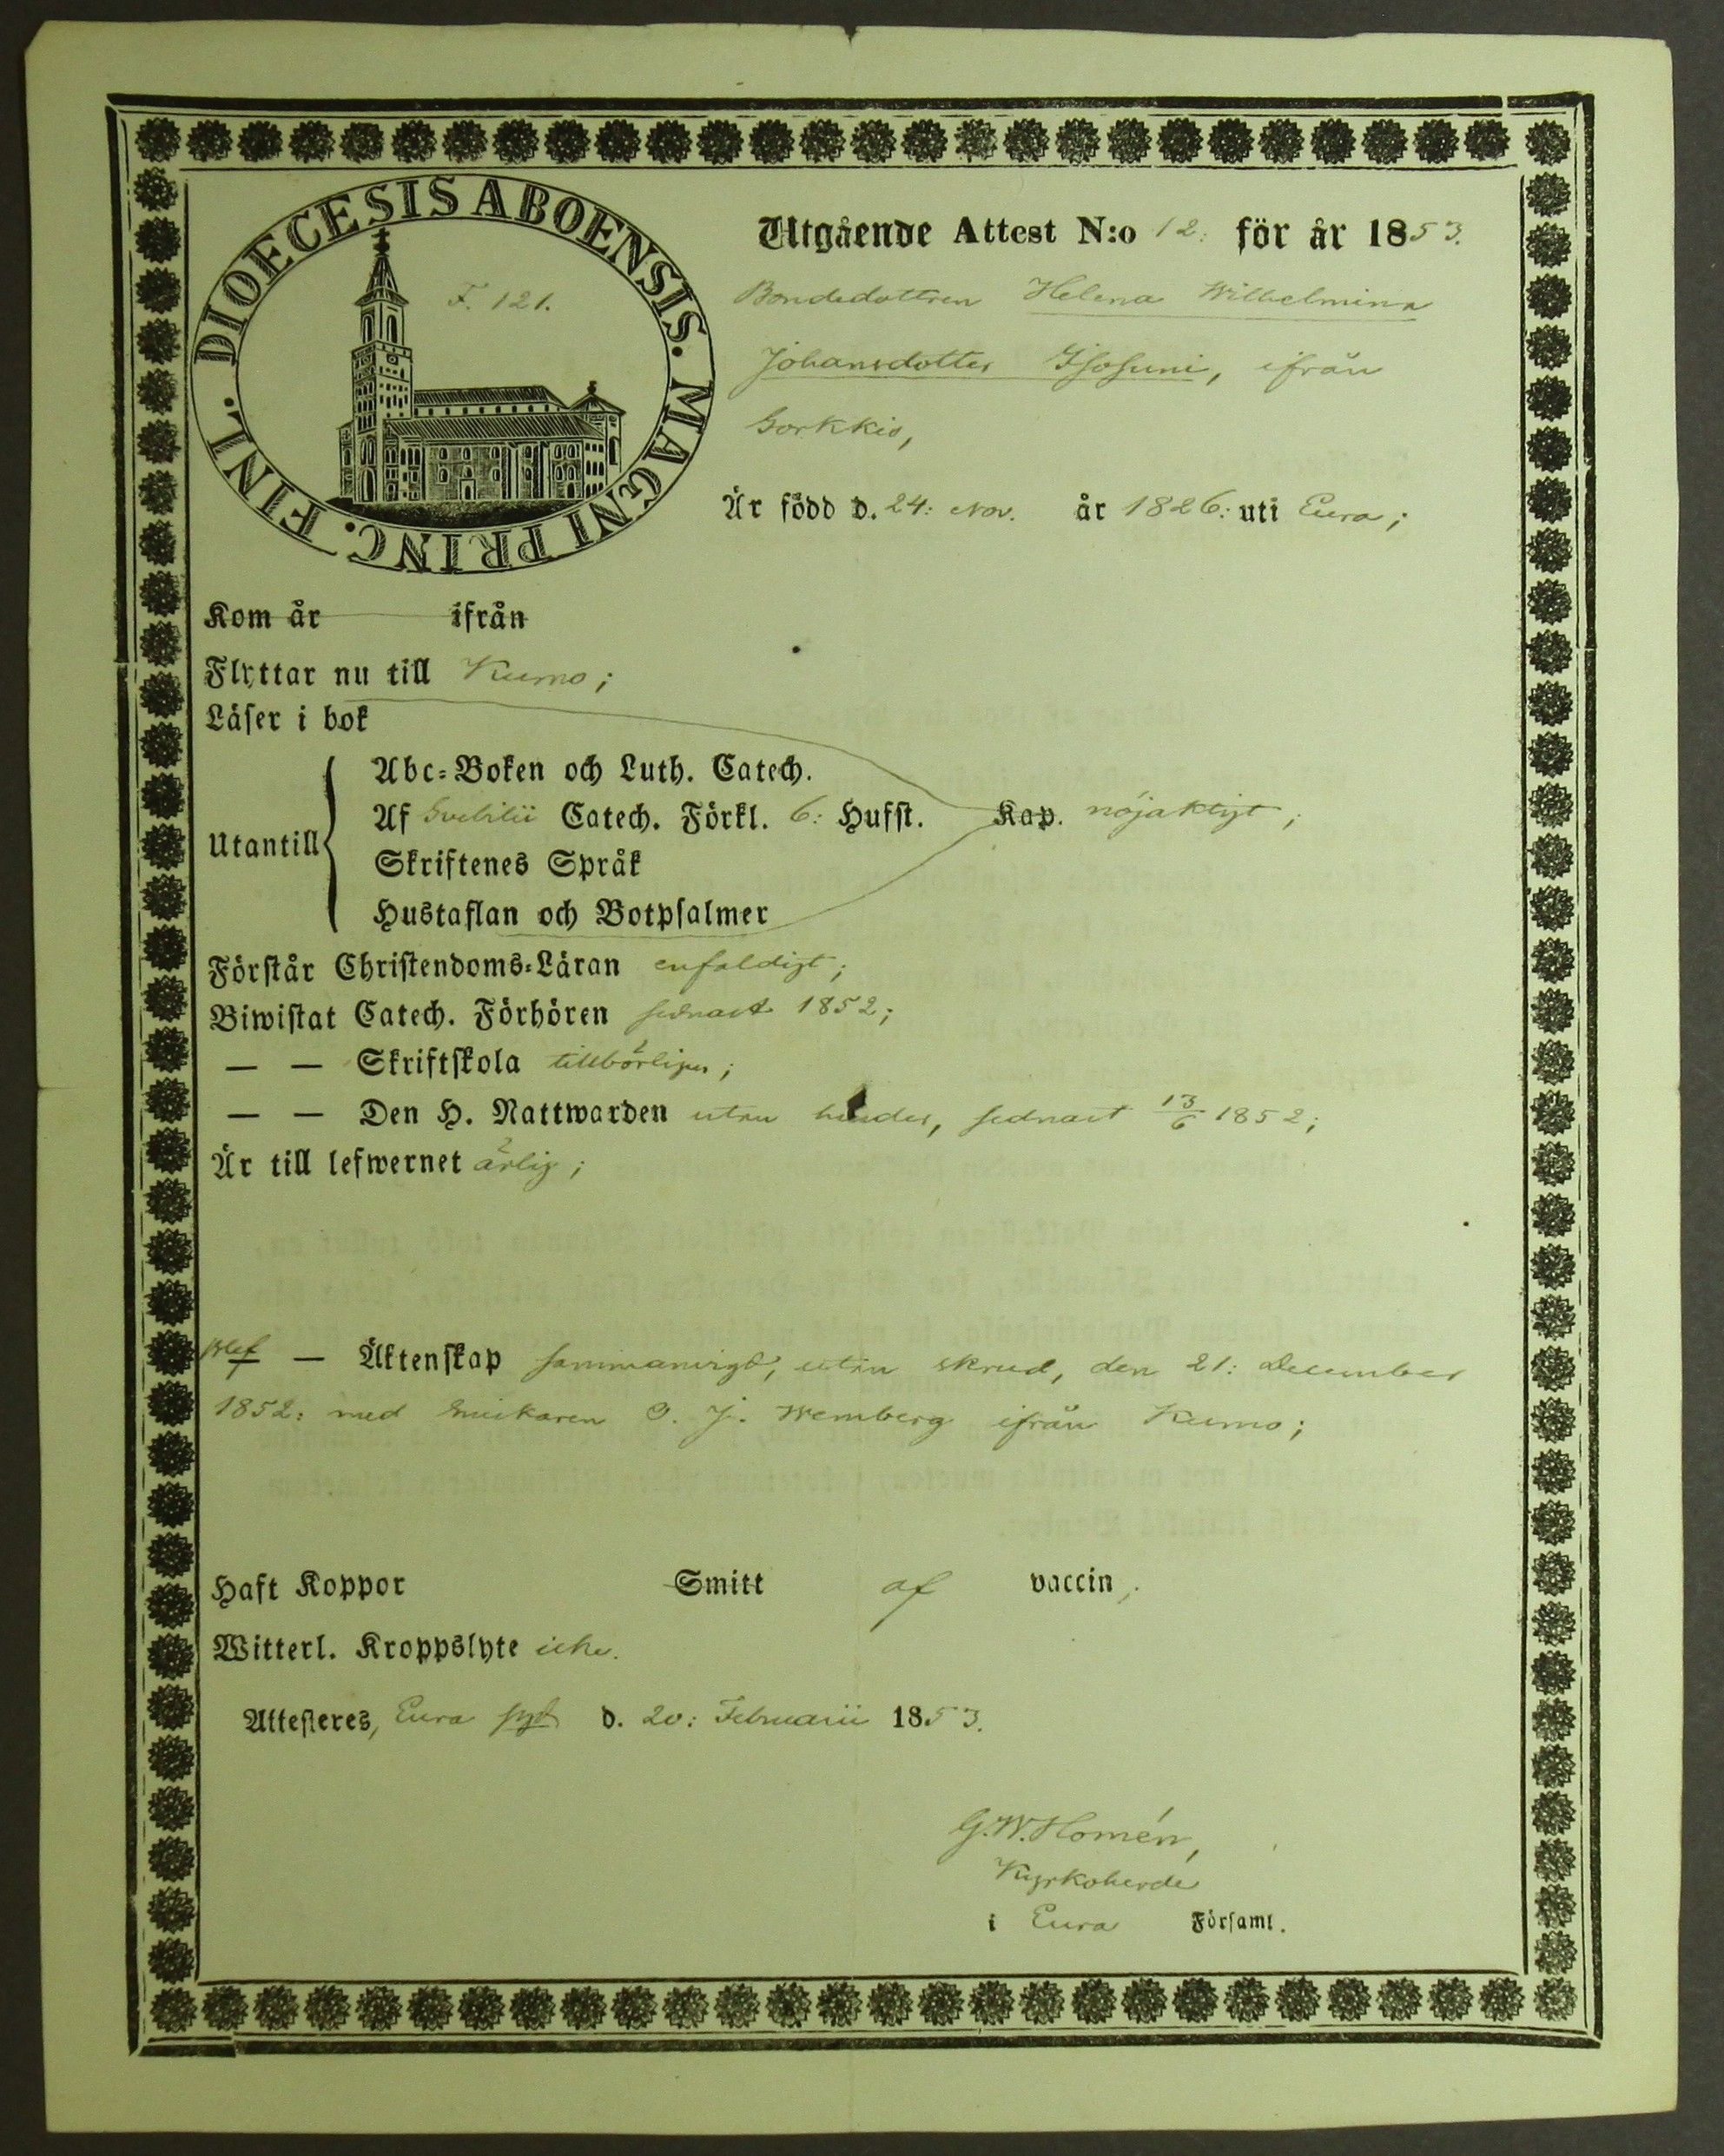 DIOECESIS ABOENSIS. MAGNI PRINC. FINL.
F. 121.
Utgående Attest N:o 12: för år 1853.
Bondedottren Helena Wilhelmina
Johansdotter Isosuni, ifrån
Sorkkis,
Är född d. 24: Nov. år 1826: uti Eura;
Kom år ifrån
Flyttar nu till Kumo;
Läser i bok
Utantill
Abc-Boken och Luth. Catech.
Af Svebilii Catech. Förkl. 6: Hufst. Kap. nöjaktigt;
Skriftenes Språk
Hustaflan och Botpsalmer
Förstår Christendoms-Läran enfaldigt;
Biwistat Catech. Förhören sednast 1852;
— — Skriftskola tillbörligen;
— — Den H. Nattwarden utan hinder, sednast 13/6 1852;
Är till lefwernet ärlig;
Blef — Äktenskap sammanvigd, utan skrud, den 21: December
1852: med Snickaren J. Wemberg ifrån Kumo;
Haft Koppor Smitt af vaccin;
Witterl. Kroppslyte icke.
Attesteres, Eura d. 20: Februarii 1853.
G. W. Homén,
Kyrkoherde
i Eura Församl.